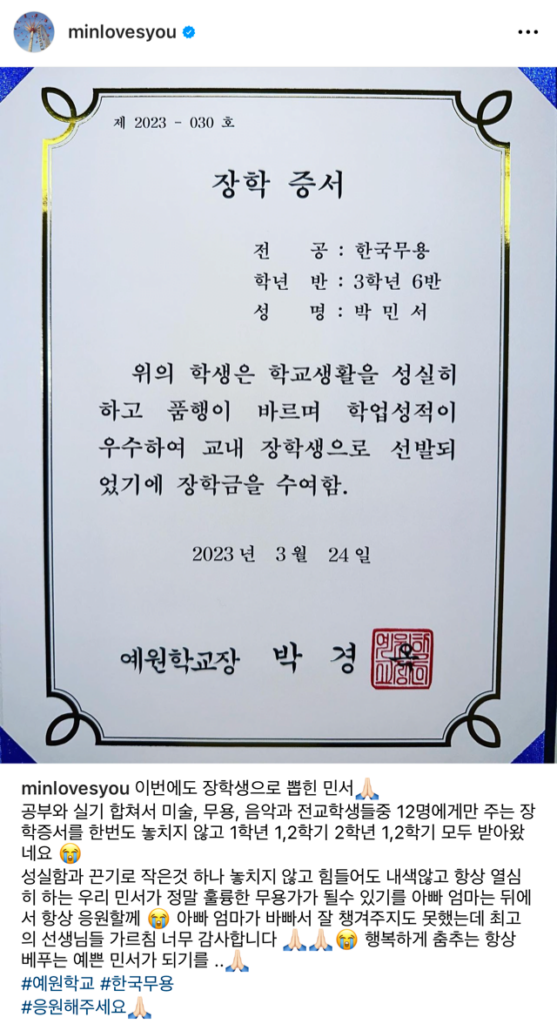 minlovesyou
제 2023 - 030 호
장학 증서
전 공 : 한국무용
학년 반 : 3학년 6반
성 명 : 박 민 서
위의 학생은 학교생활을 성실히
하고 품행이 바르며 학업성적이
우수하여 교내 장학생으로 선발되
었기에 장학금을 수여함.
2023년 3월 24일
예원학교장 박 경
minlovesyou 이번에도 장학생으로 뽑힌 민서🙏🏻
공부와 실기 합쳐서 미술, 무용, 음악과 전교학생들중 12명에게만 주는 장
학증서를 한번도 놓치지 않고 1학년 1,2학기 2학년 1,2학기 모두 받아왔
네요 😭
성실함과 끈기로 작은것 하나 놓치지 않고 힘들어도 내색않고 항상 열심
히 하는 우리 민서가 정말 훌륭한 무용가가 될수 있기를 아빠 엄마는 뒤에
서 항상 응원할께 😭 아빠 엄마가 바빠서 잘 챙겨주지도 못했는데 최고
의 선생님들 가르침 너무 감사합니다 🙏🏻🙏🏻😭 행복하게 춤추는 항상
베푸는 예쁜 민서가 되기를 ..🙏🏻
#예원학교 #한국무용
#응원해주세요🙏🏻